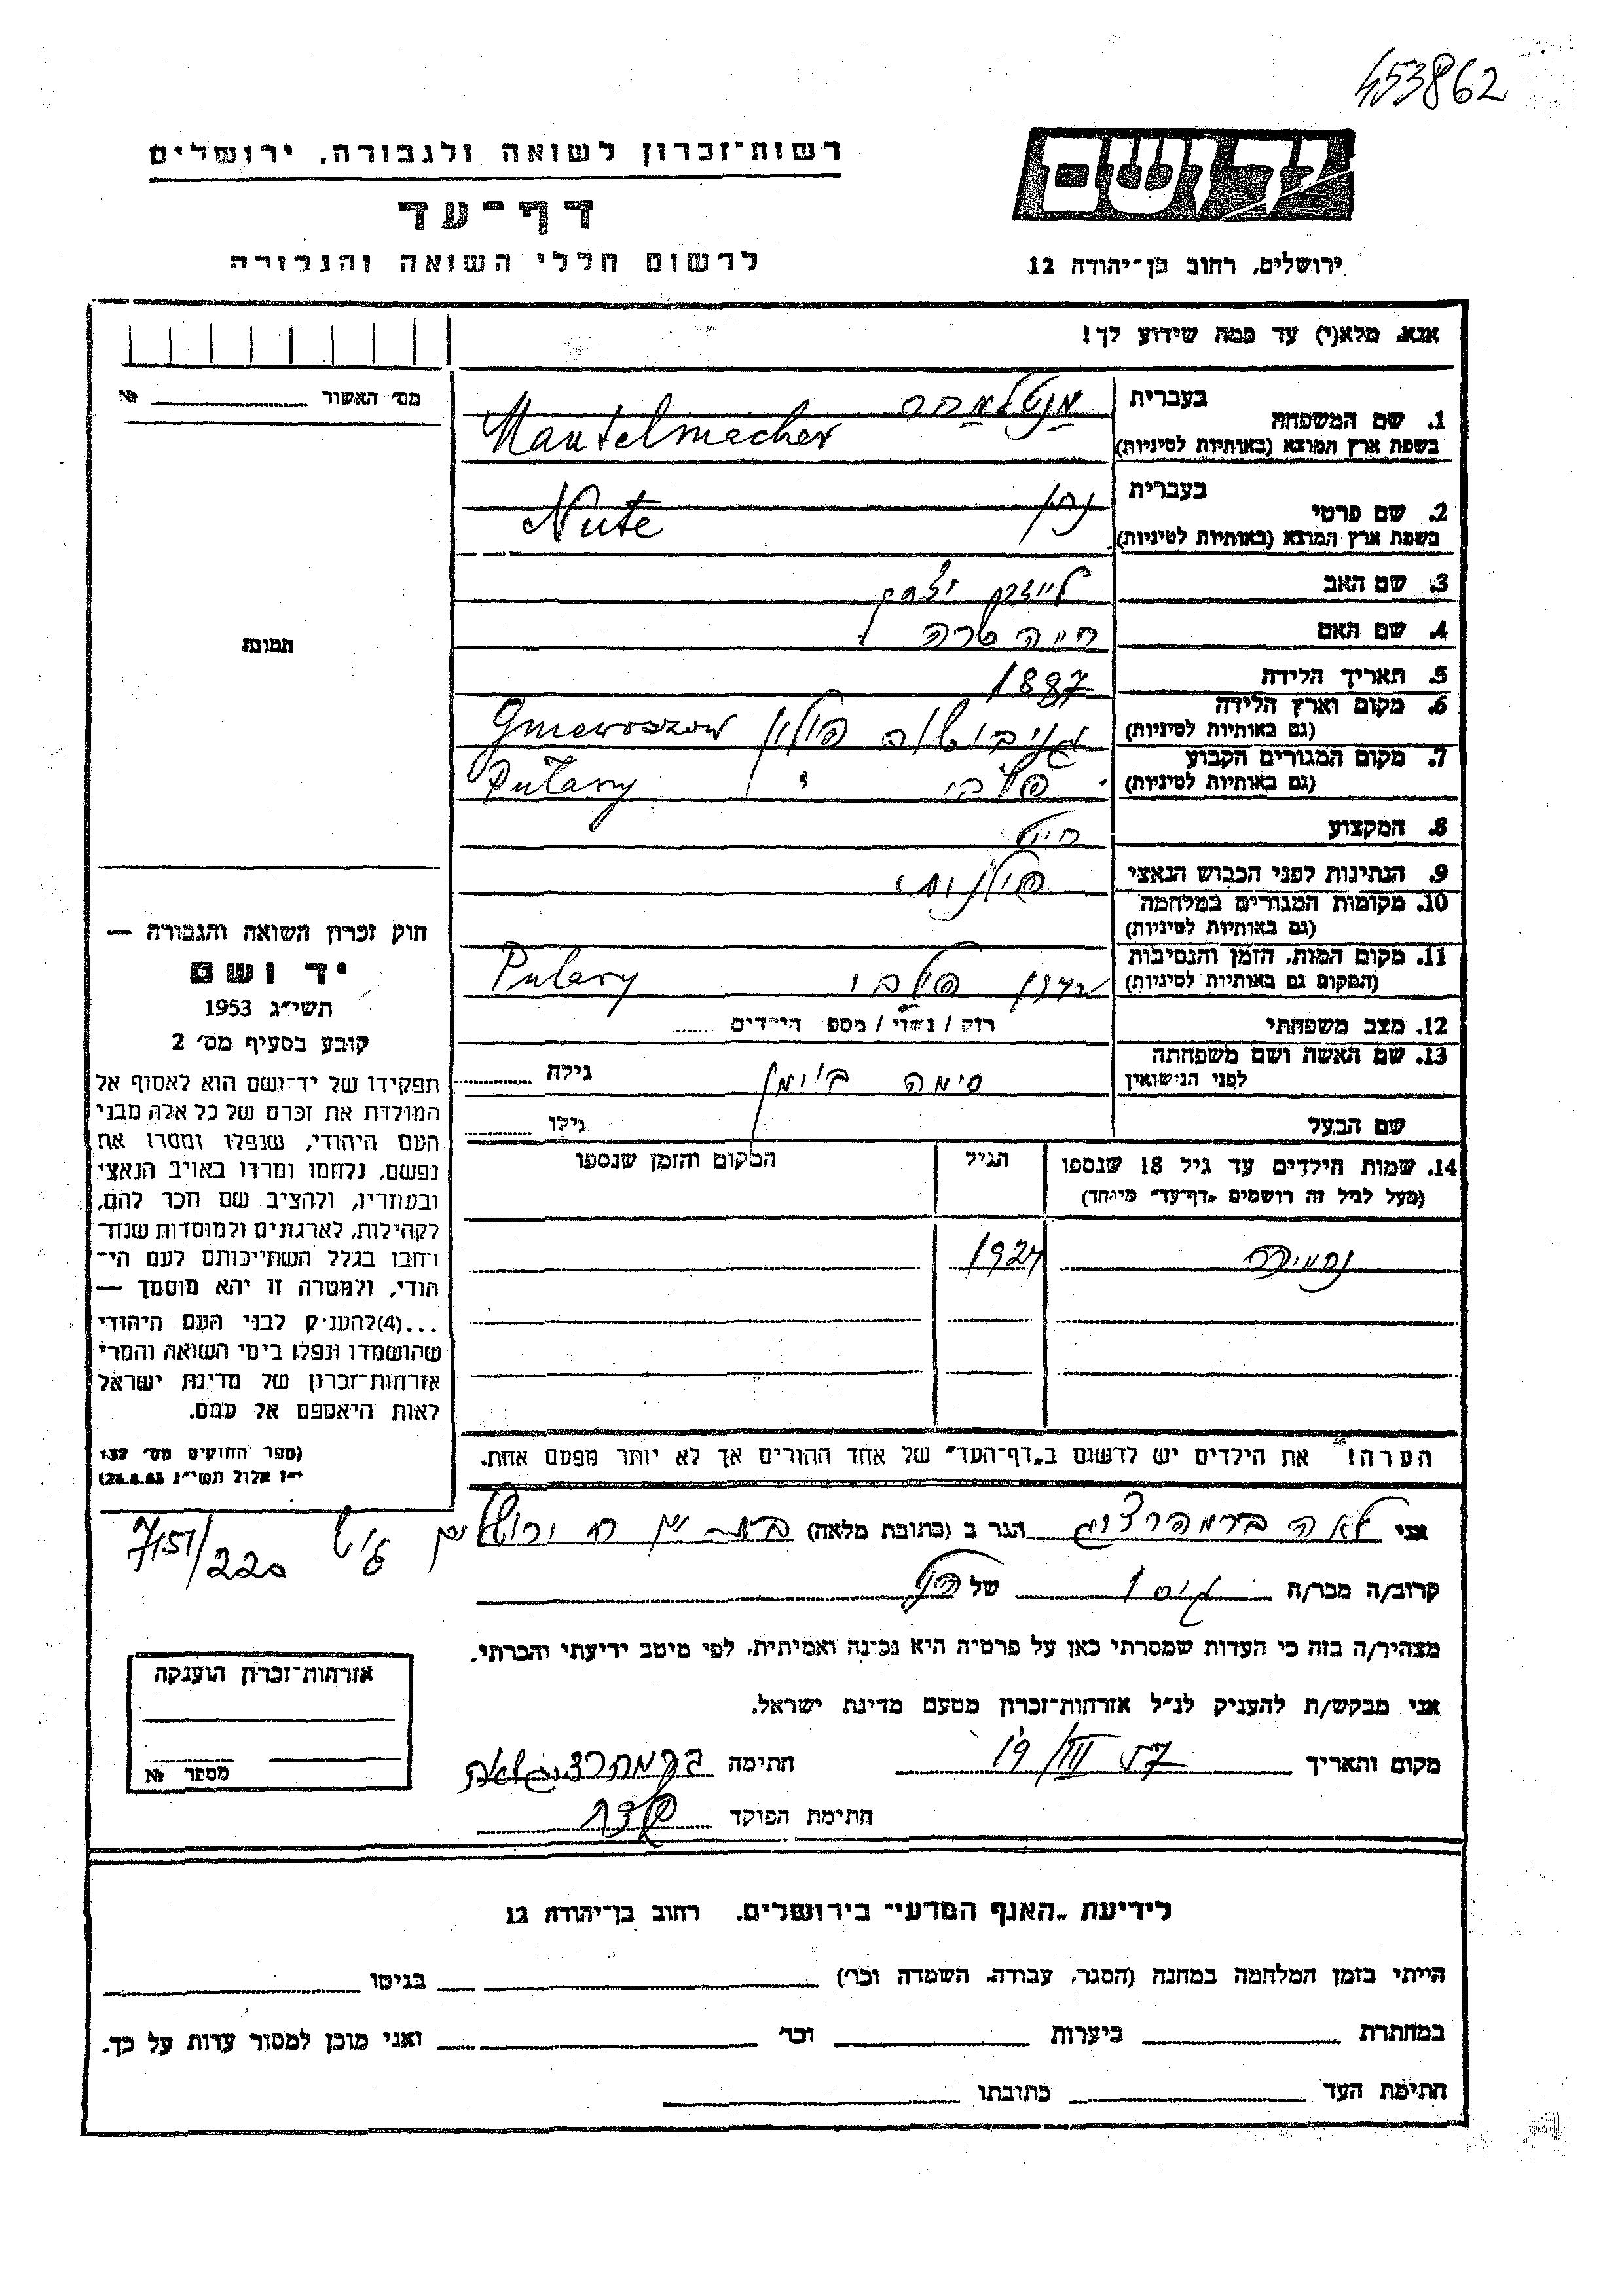 453862
יד ושם
רשות־זכרון לשואה ולגבורה, ירושלים
דף־עד
לרשום חללי השואה והגבורה
ירושלים, רחוב בן־יהודה 12
אנא, מלא(י) עד כמה שידוע לך!
מס׳ האשור № 
1. שם המשפחה בעברית מנטלמכר
בשפת ארץ המוצא (באותיות לטיניות) Mantelmacher
2. שם פרטי בעברית נתן
בשפת ארץ המוצא (באותיות לטיניות) Nute
3. שם האב יצחק
4. שם האם חיה שרה
תמונה
5. תאריך הלידה 1887
6. מקום וארץ הלידה (גם באותיות לטיניות) גניבושוב פולין Gniewoszow
7. מקום המגורים הקבוע (גם באותיות לטיניות) פולבי " Puławy
8. המקצוע חייט
9. הנתינות לפני הכבוש הנאצי פולנית
10. מקומות המגורים במלחמה (גם באותיות לטיניות)
11. מקום המות, הזמן והנסיבות (המקום גם באותיות לטיניות) פולבי Pulawy
12. מצב משפחתי רווק / נשוי / מספ׳ הילדים
13. שם האשה ושם משפחתה לפני הנישואין סימה גילה
שם הבעל גילו
14. שמות הילדים עד גיל 18 שנספו הגיל המקום והזמן שנספו
(מעל לגיל זה רושמים „דף־עד” מיוחד)
1927
הערה! את הילדים יש לרשום ב„דף־העד” של אחד ההורים אך לא יותר מפעם אחת.
חוק זכרון השואה והגבורה —
יד ושם
תשי״ג 1953
קובע בסעיף מס׳ 2
תפקידו של יד־ושם הוא לאסוף אל
המולדת את זכרם של כל אלה מבני
העם היהודי, שנפלו ומסרו את
נפשם, נלחמו ומרדו באויב הנאצי
ובעוזריו, ולהציב שם וזכר להם,
לקהילות, לארגונים ולמוסדות שנח־
רבו בגלל השתייכותם לעם הי־
הודי, ולמטרה זו יהא מוסמך —
...(4) להעניק לבני העם היהודי
שהושמדו ונפלו בימי השואה והמרי
אזרחות־זכרון של מדינת ישראל
לאות היאספם אל עמם.
(ספר החוקים מס׳ 132
י״ז אלול תשי״ג 28.8.53)
אני לאה ברמהרצוג הגר ב (כתובת מלאה) ירושלים
7151/220
קרוב/ה מכר/ה גיסו של הנ״ל
מצהיר/ה בזה כי העדות שמסרתי כאן על פרטיה היא נכונה ואמיתית, לפי מיטב ידיעתי והכרתי.
אני מבקש/ת להעניק לנ״ל אזרחות־זכרון מטעם מדינת ישראל.
מקום ותאריך 19/III 57 חתימה ברמהרצוג לאה
חתימת הפוקד
אזרחות־זכרון הוענקה
מספר №
לידיעת „האגף המדעי” בירושלים, רחוב בן־יהודה 12
הייתי בזמן המלחמה במחנה (הסגר, עבודה, השמדה וכו׳) בגיטו
במחתרת ביערות וכו׳ ואני מוכן למסור עדות על כך.
חתימת העד כתובתו